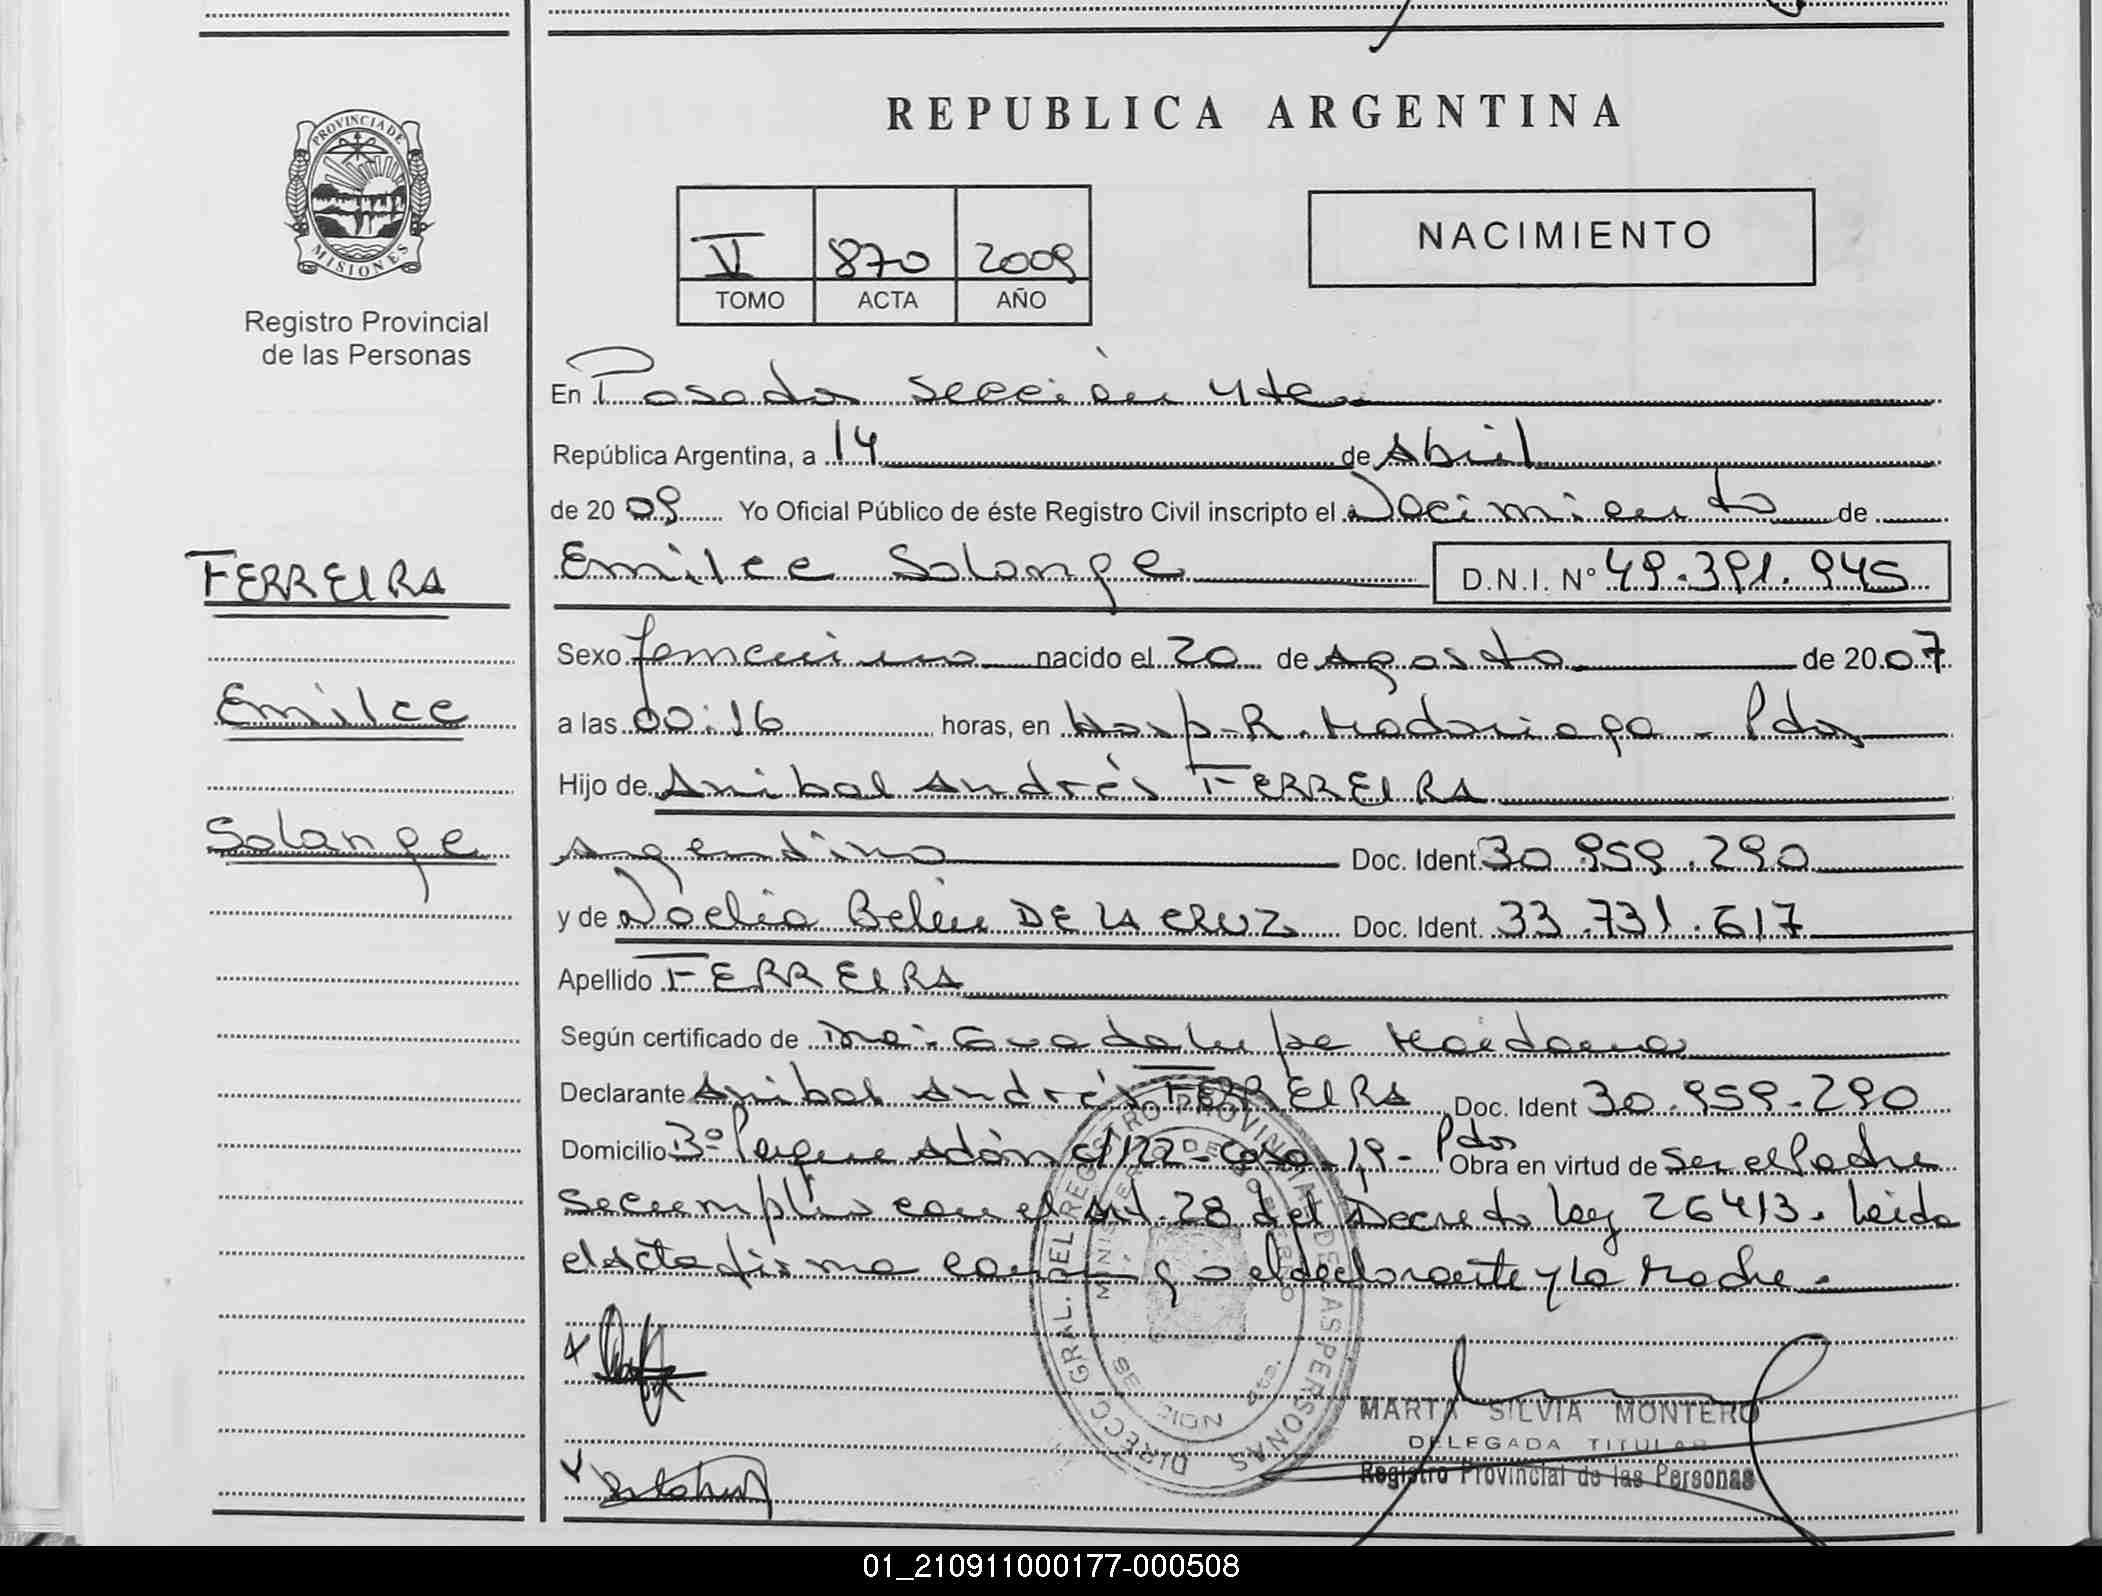 REPUBLICA ARGENTINA
PROVINCIA DE
MISIONES
Registro Provincial
de las Personas
V 870 2009
TOMO ACTA AÑO
NACIMIENTO
FERREIRA
Emilce
Solange
En Posadas sección 4ta.
República Argentina, a 14 de Abril
de 2009 Yo Oficial Público de éste Registro Civil inscripto el Nacimiento de
Emilce Solange D.N.I. Nº 49.391.945
Sexo femenino nacido el 20 de Agosto de 2007
a las 00:16 horas, en Hosp. R. Madariaga - Pdas
Hijo de Anibal Andrés FERREIRA
Argentino Doc. Ident. 30.959.290
y de Noelia Belén DE LA CRUZ Doc. Ident. 33.731.617
Apellido FERREIRA
Según certificado de Dra. Guadalupe Maidana
Declarante Anibal Andrés FERREIRA Doc. Ident 30.959.290
Domicilio Bº Parque Adám c/122 - casa 19 - Pdas Obra en virtud de ser el Padre
se cumplió con el Art. 28 del Decreto Ley 26413. Leida
el Acta firma conmigo el declarante y la Madre.
DIRECC. GRAL. DEL REGISTRO PROVINCIAL DE LAS PERSONAS
MINISTERIO DE GOBIERNO
SECCION 4ta.
MARTA SILVIA MONTERO
DELEGADA TITULAR
Registro Provincial de las Personas
01_210911000177-000508